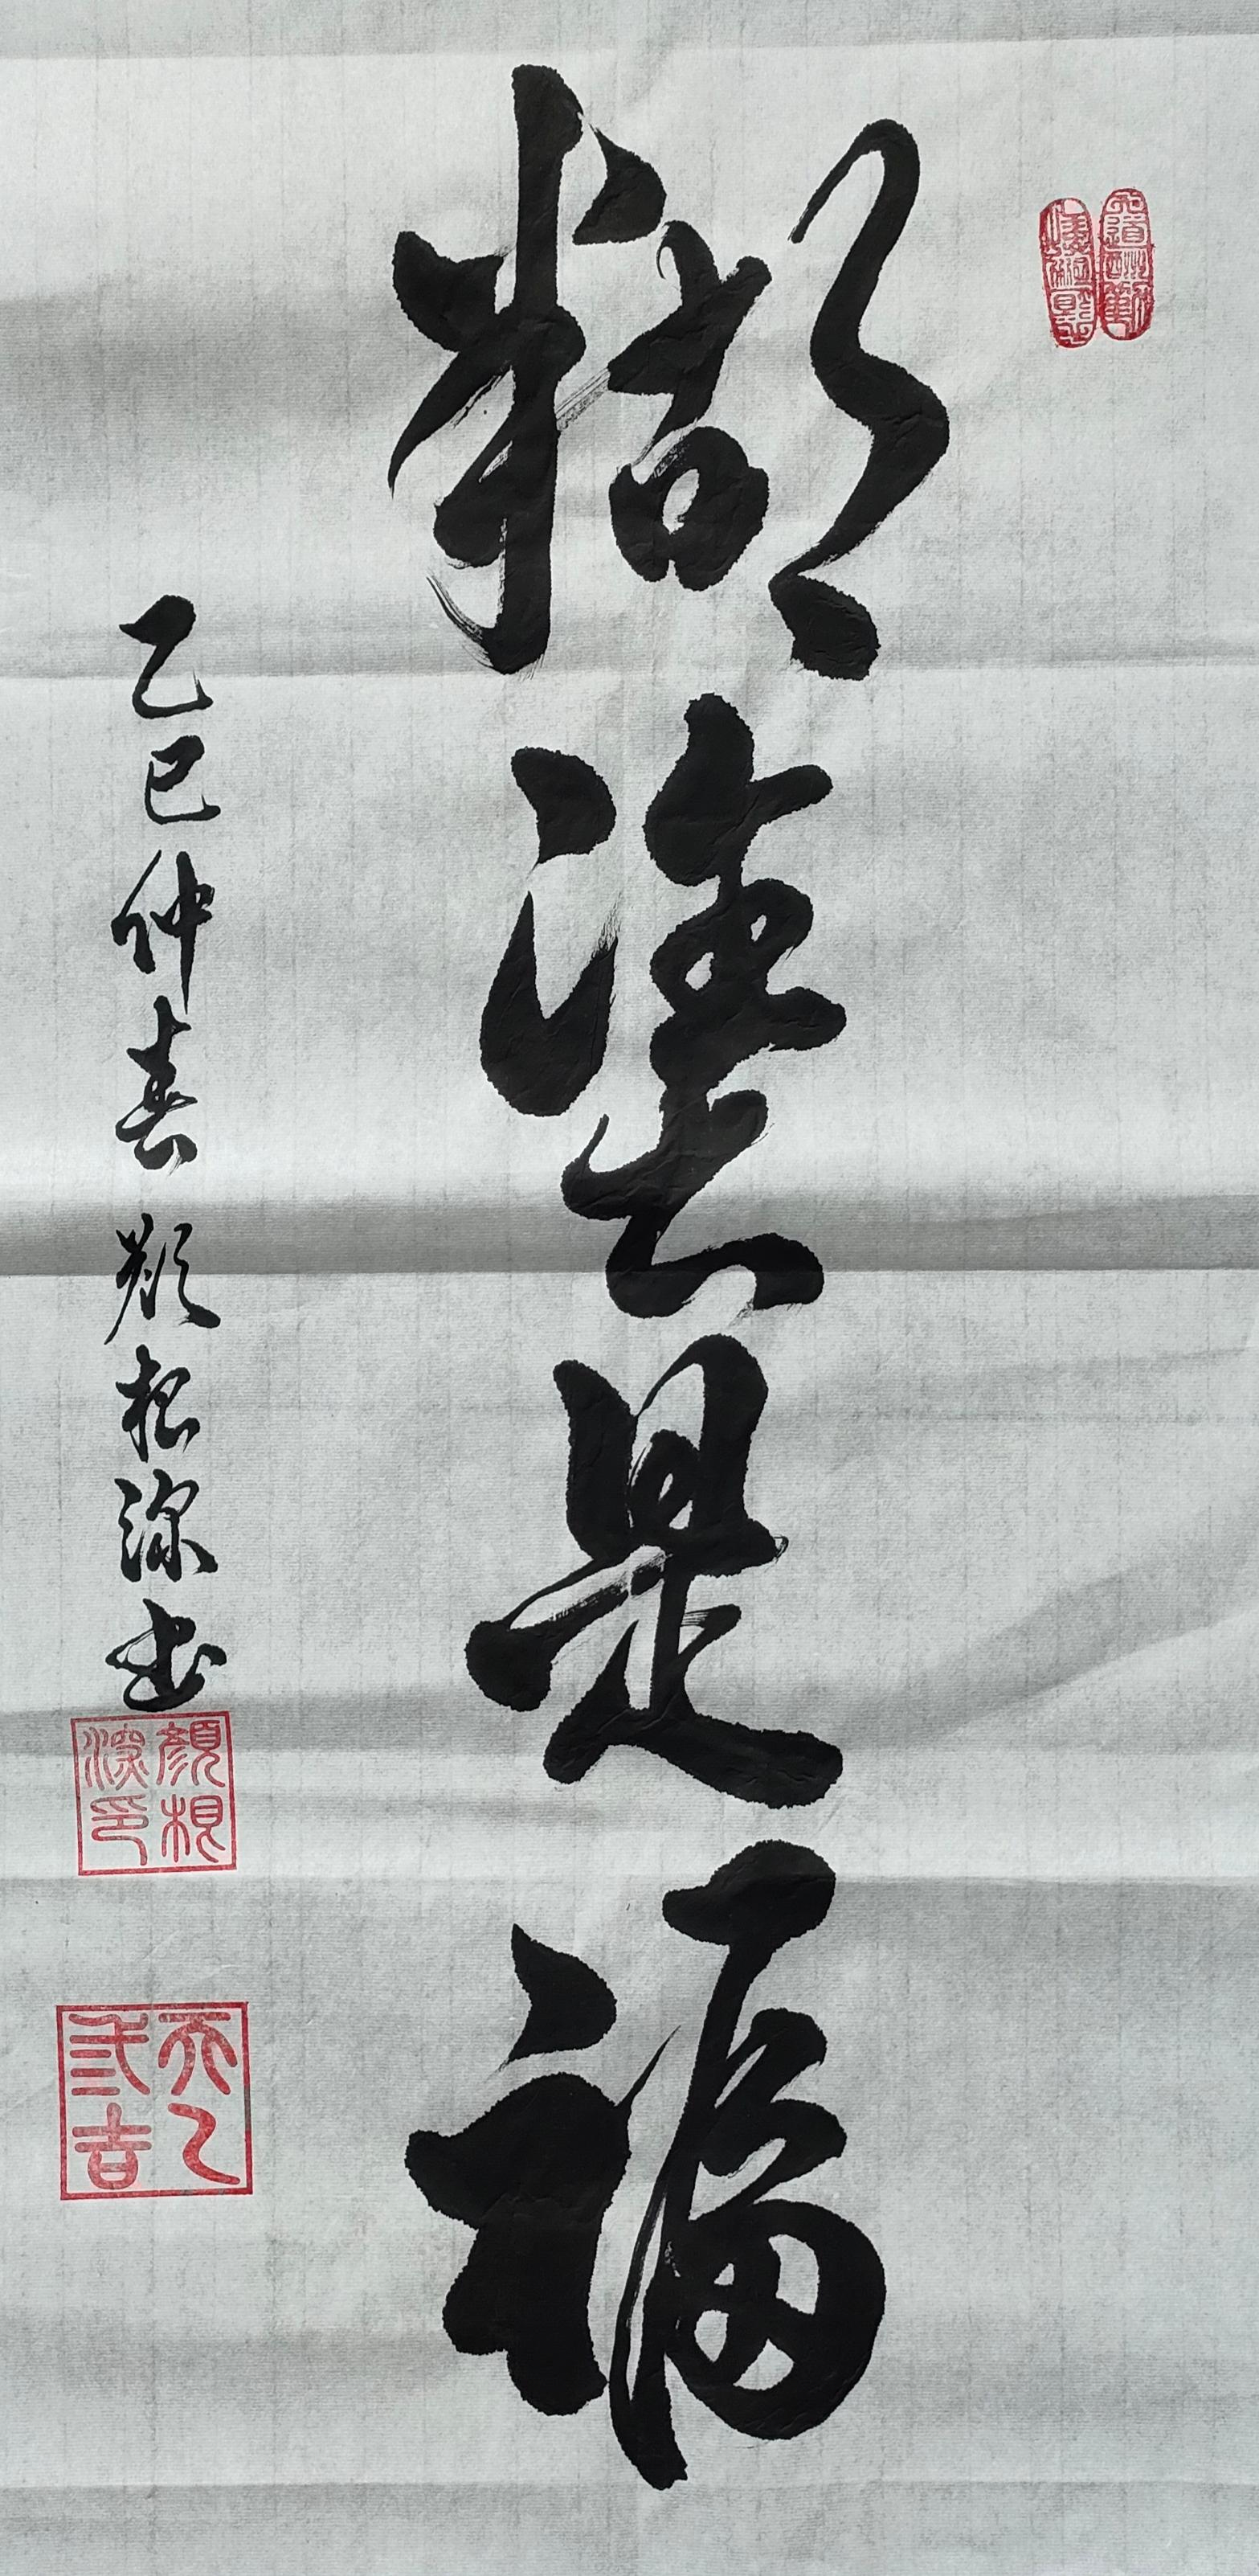 糊塗是福
乙巳仲春 顏根深書
顏根深印
天乙貳吉